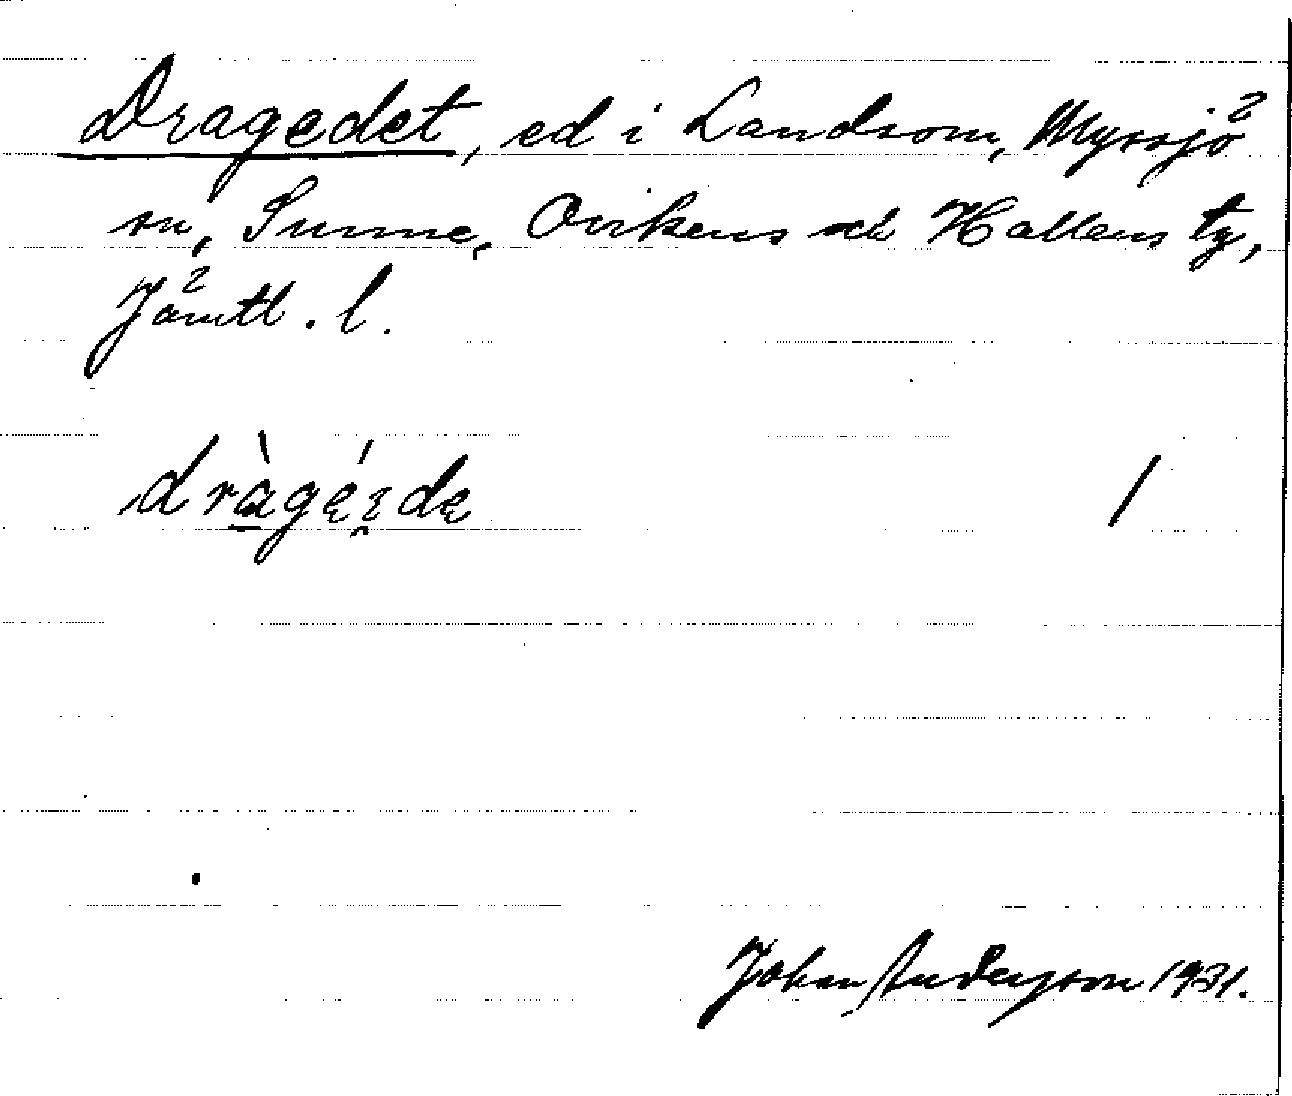 Dragedet, ed i Landsom, Myssjö
sn, Sunne, Ovikens och Hallens tg,
Jämtl. l.
dràgé̜ɪde̜ 1
Johan Anderson 1931.